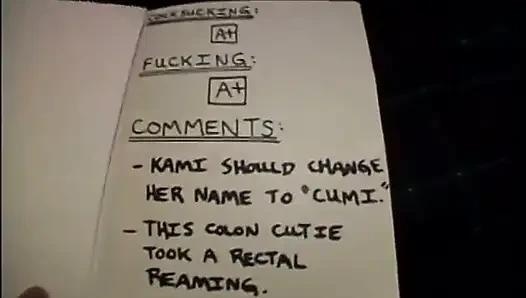 COCKSUCKING:
A+
FUCKING:
A+
COMMENTS:
- KAMI SHOULD CHANGE
HER NAME TO "CUMI."
- THIS COLON CUTIE
TOOK A RECTAL
REAMING.